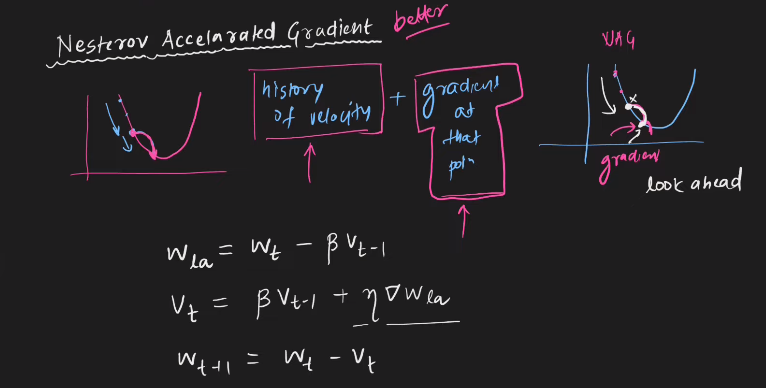 Nesterov Accelarated Gradient better
NAG
history
of velocity
+
gradient
at
that
point
gradien
look ahead
w_la = w_t - β v_t-1
v_t = β v_t-1 + η ∇ w_la
w_t+1 = w_t - v_t